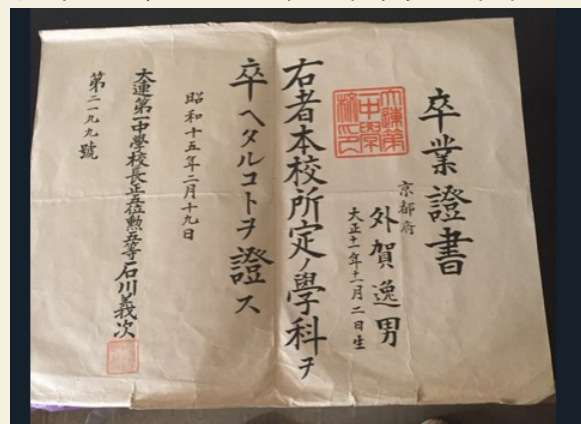 卒業證書
京都府
外賀逸男
大正十一年十一月二日生
右者本校所定ノ學科ヲ
卒ヘタルコトヲ證ス
昭和十五年二月十九日
大連第一中學校長正五位勲五等石川義次
第二一九九號
大連第一中學校印